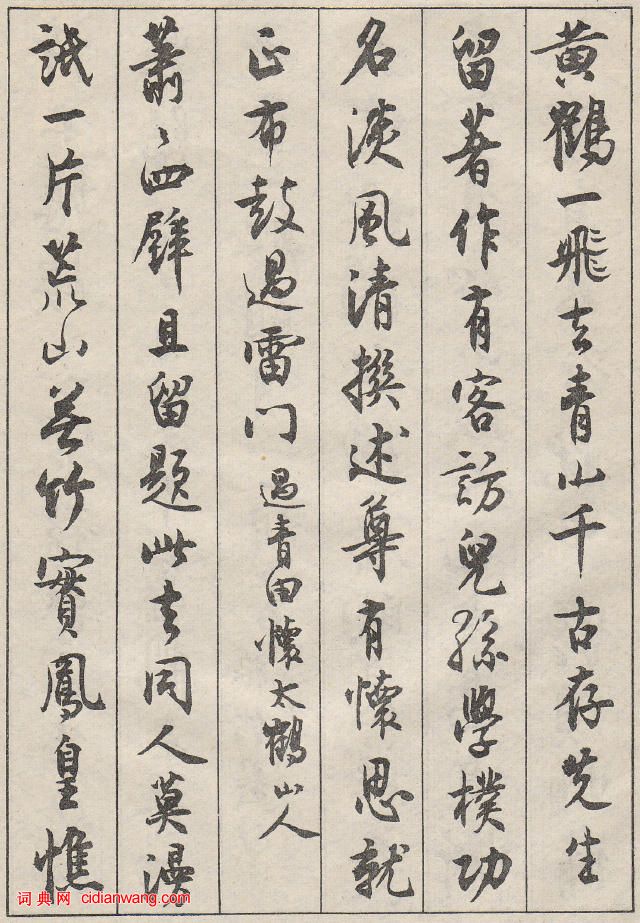 黄鶴一飛去青山千古存先生
留著作有客訪兒孫學樸功
名淡風清撰述尊有懷思就
正布鼓過雷门 過青田懷太鶴山人
蕭〻四壁且留題此去同人莫漫
詆一片荒山無竹實鳳皇憔
词典网 cidianwang.com